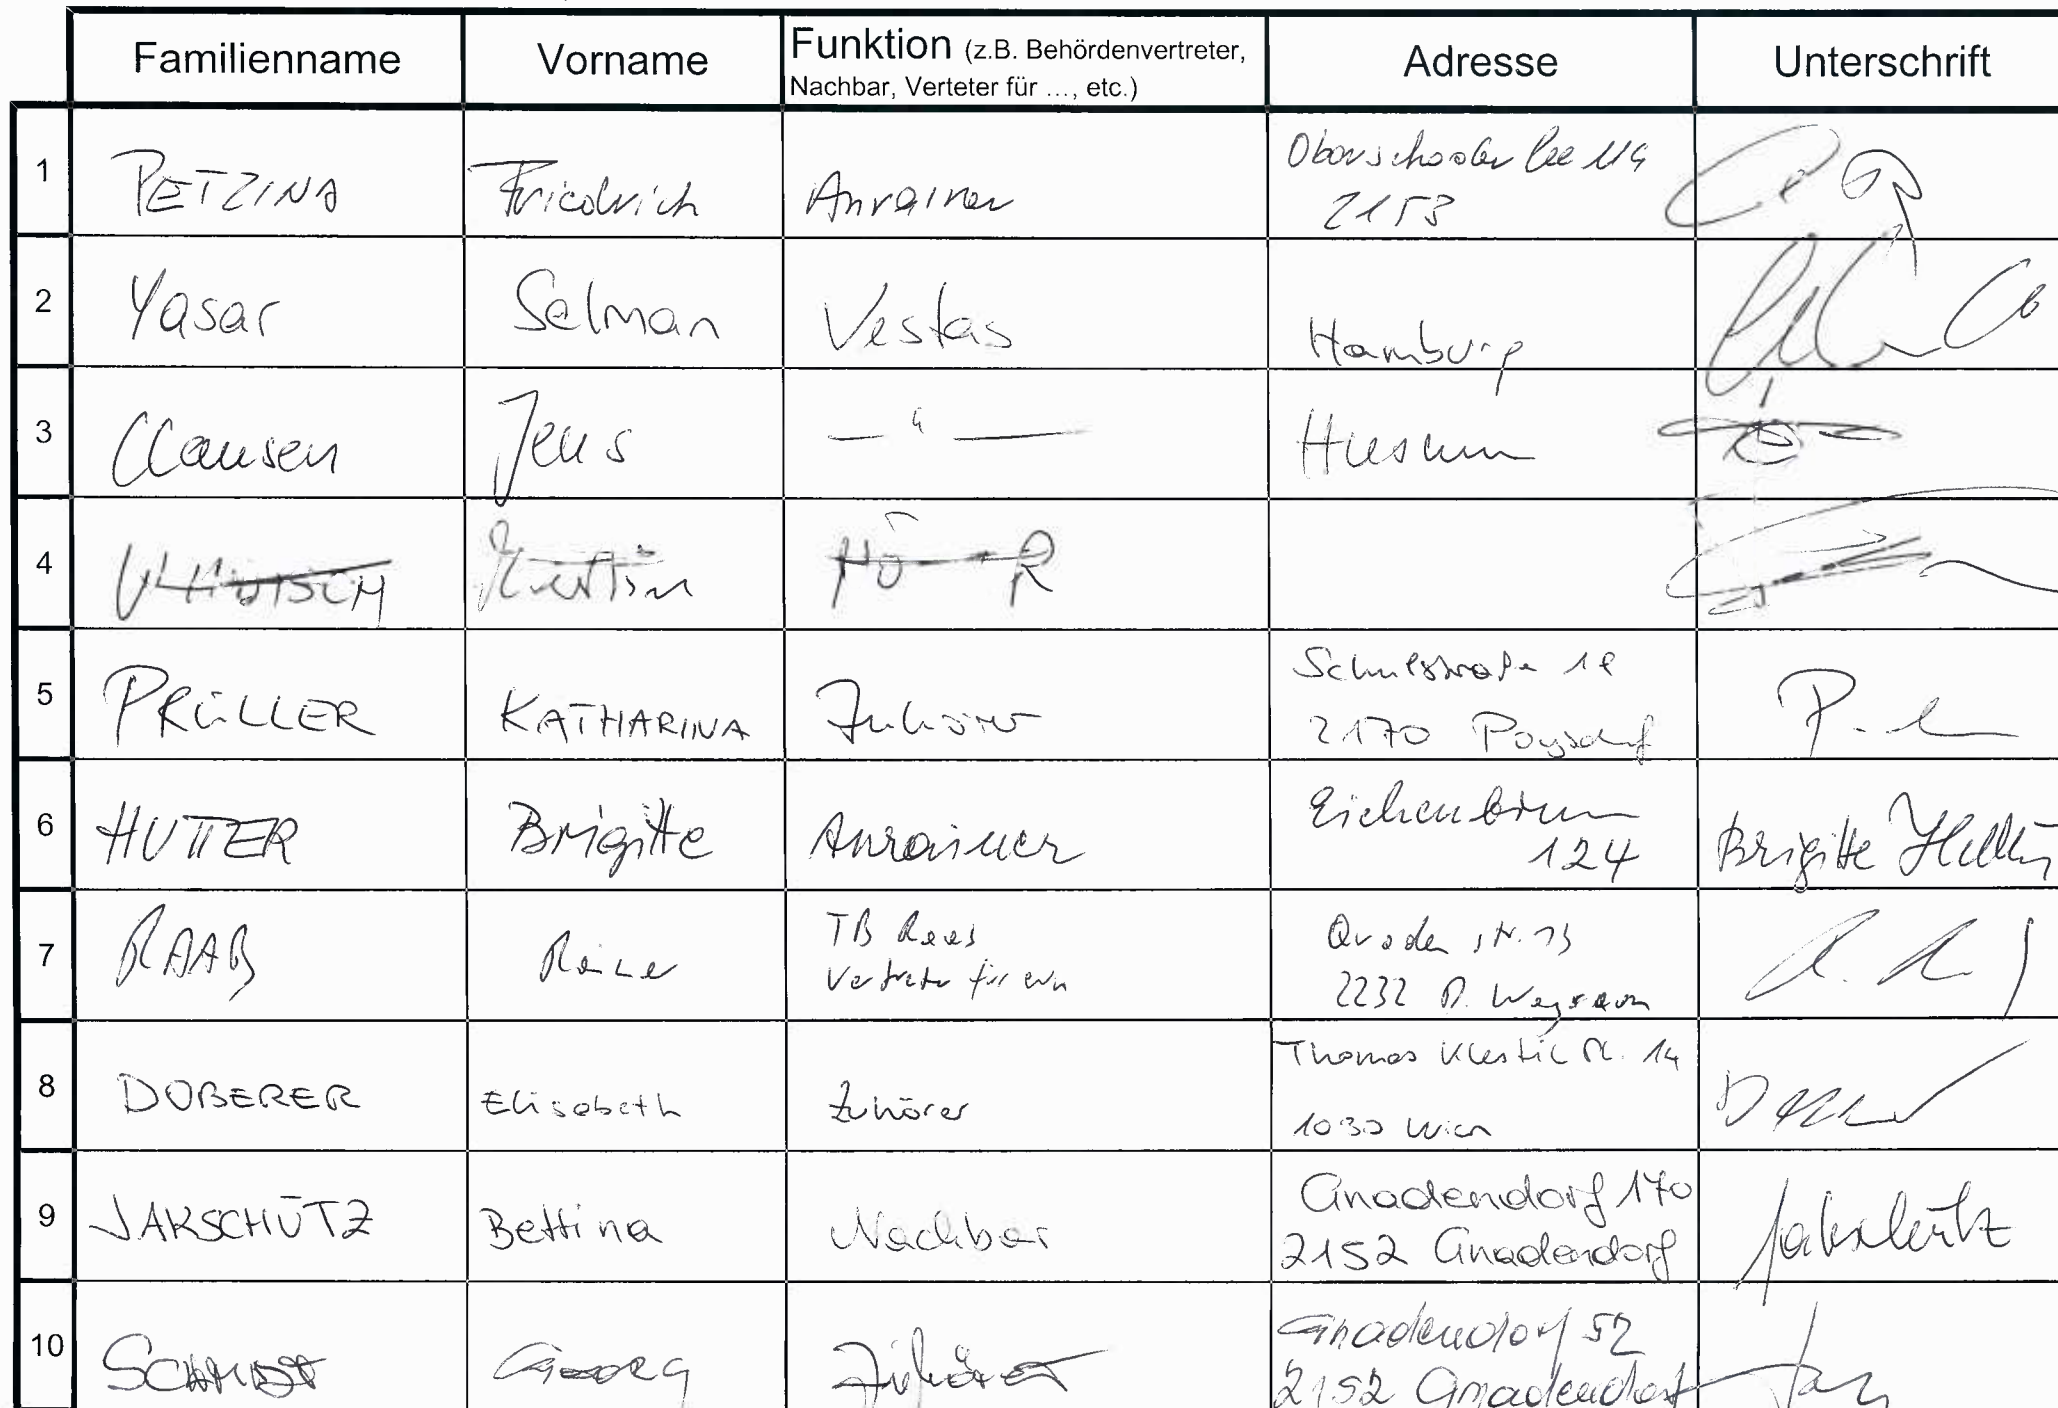 Familienname Vorname Funktion (z.B. Behördenvertreter, Adresse Unterschrift
Nachbar, Verteter für ..., etc.)
1 PETZINA Friedrich Anrainer 114
2153
2 Yasar Selman Vestas Hamburg
3 Clausen Jens — " — Husum
4
5 PRÜLLER KATHARINA Zuhörer Schulstraße 18
2170 Poysdorf
6 HUTTER Brigitte Anrainer Eichenbrunn
124 Brigitte Hutter
7 RAAB Rainer TB Raab
Vertreter für
2232 D. Wagram
8 DOBERER Elisabeth Zuhörer Thomas Klestil Pl. 14
1030 Wien
9 JAKSCHÜTZ Bettina Nachbar Gnadendorf 170
2152 Gnadendorf Jakschütz
10 SCHMIDT Georg Zuhörer Gnadendorf 52
2152 Gnadendorf